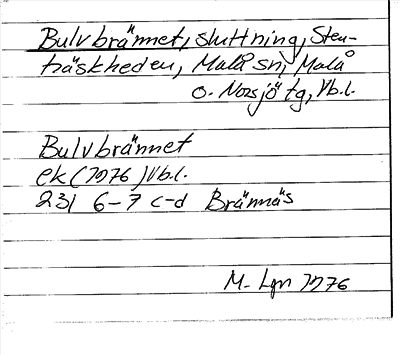 Bulvbrännet, sluttning, Sten-
träskheden, Malå sn, Malå
o. Norsjö tg, Vb.l.
Bulvbrännet
ek (1976) Vb.l.
231 6-7 c-d Brännäs
M. Lgn 1976